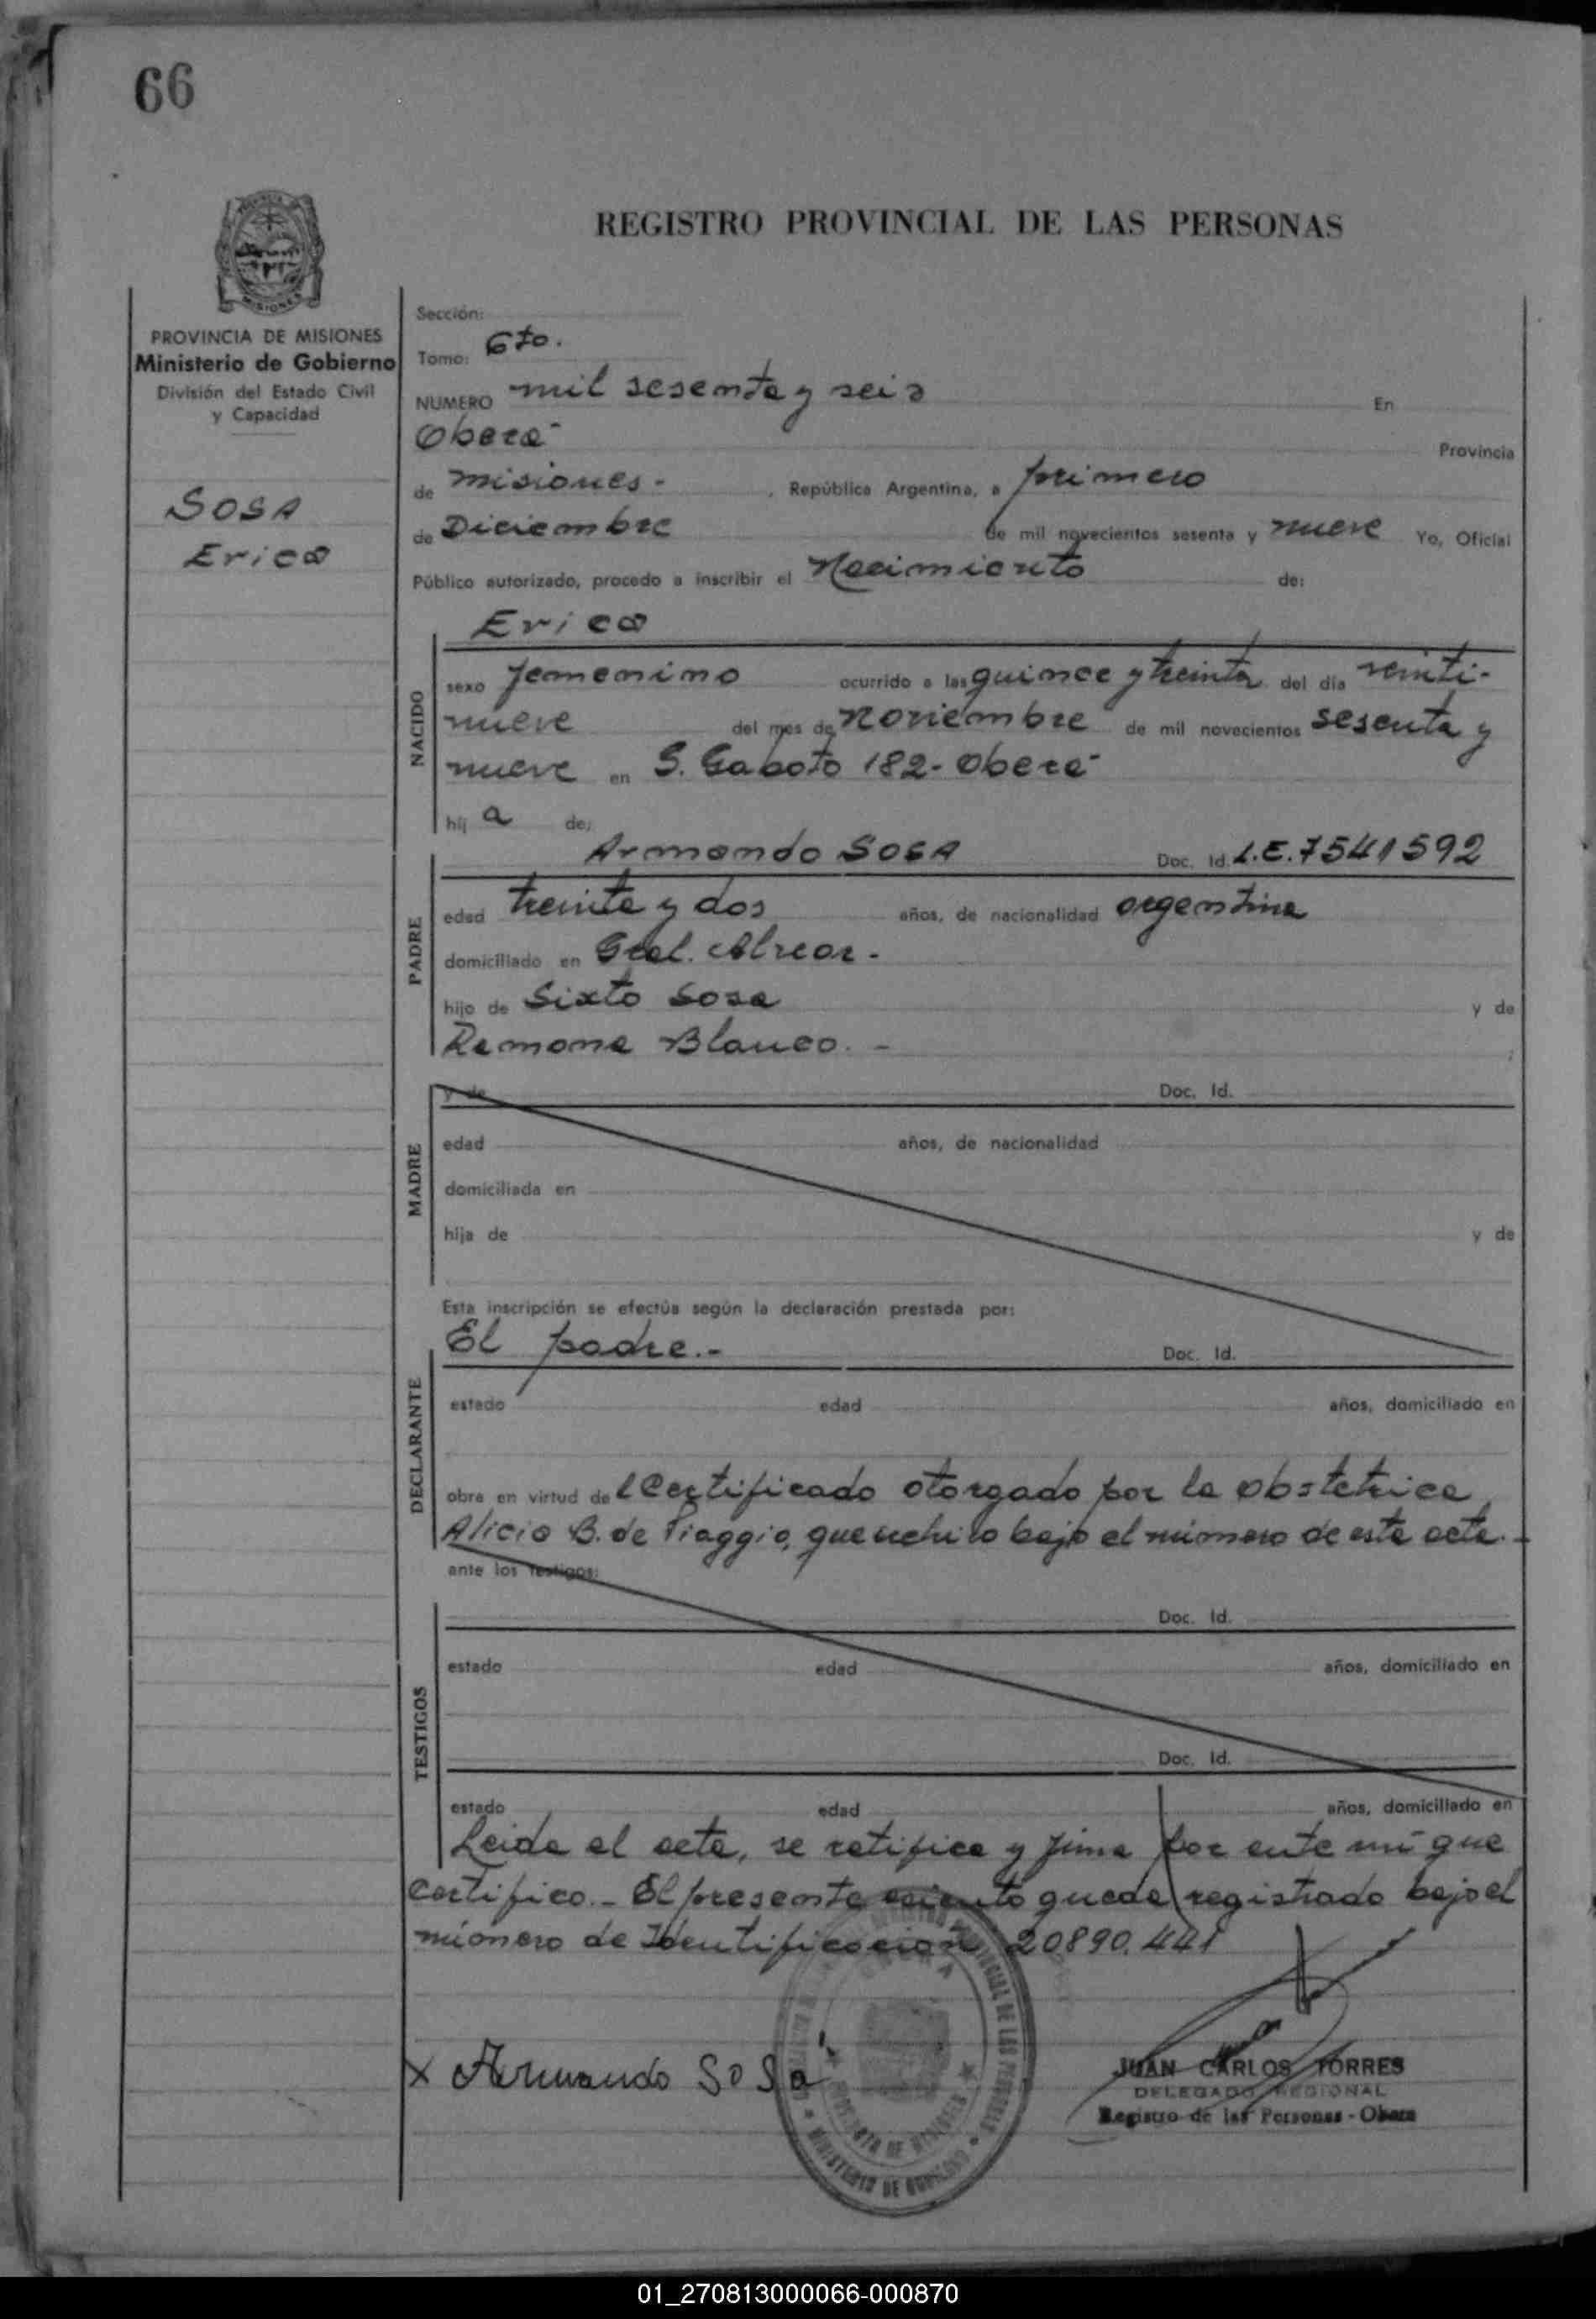 66
REGISTRO PROVINCIAL DE LAS PERSONAS
PROVINCIA DE MISIONES
Ministerio de Gobierno
División del Estado Civil
y Capacidad
SOSA
Erica
Sección:
Tomo: 6to.
NUMERO mil sesenta y seis En
Oberá Provincia
de misiones.- , República Argentina, a primero
de Diciembre de mil novecientos sesenta y nueve Yo, Oficial
Público autorizado, procedo a inscribir el Nacimiento de:
NACIDO
Erica
sexo femenino ocurrido a las quince y treinta del día veinti-
nueve del mes de noviembre de mil novecientos sesenta y
nueve en S. Gaboto 182- Oberá
hij a de:
PADRE
Armando SOSA Doc. Id. L.E. 7541592
edad treinta y dos años, de nacionalidad argentina
domiciliado en Gral. Alvear.-
hijo de Sixto Sosa y de
Ramona Blanco.- ;
MADRE
y de Doc. Id.
edad años, de nacionalidad
domiciliada en
hija de y de
Esta inscripción se efectúa según la declaración prestada por:
DECLARANTE
El padre.- Doc. Id.
estado edad años, domiciliado en
obra en virtud de l Certificado otorgado por la obstetrica
Alicia B. de Piaggio, que archivo bajo el número de esta acta.-
ante los testigos:
TESTIGOS
Doc. Id.
estado edad años, domiciliado en
Doc. Id.
estado edad años, domiciliado en
Leida el acta, se ratifica y firma por ante mí que
certifico.- El presente asiento queda registrado bajo el
número de Identificación 20890.441
x Armando Sosa
JUAN CARLOS TORRES
DELEGADO REGIONAL
Registro de las Personas - Obera
MINISTERIO DE GOBIERNO
01_270813000066-000870